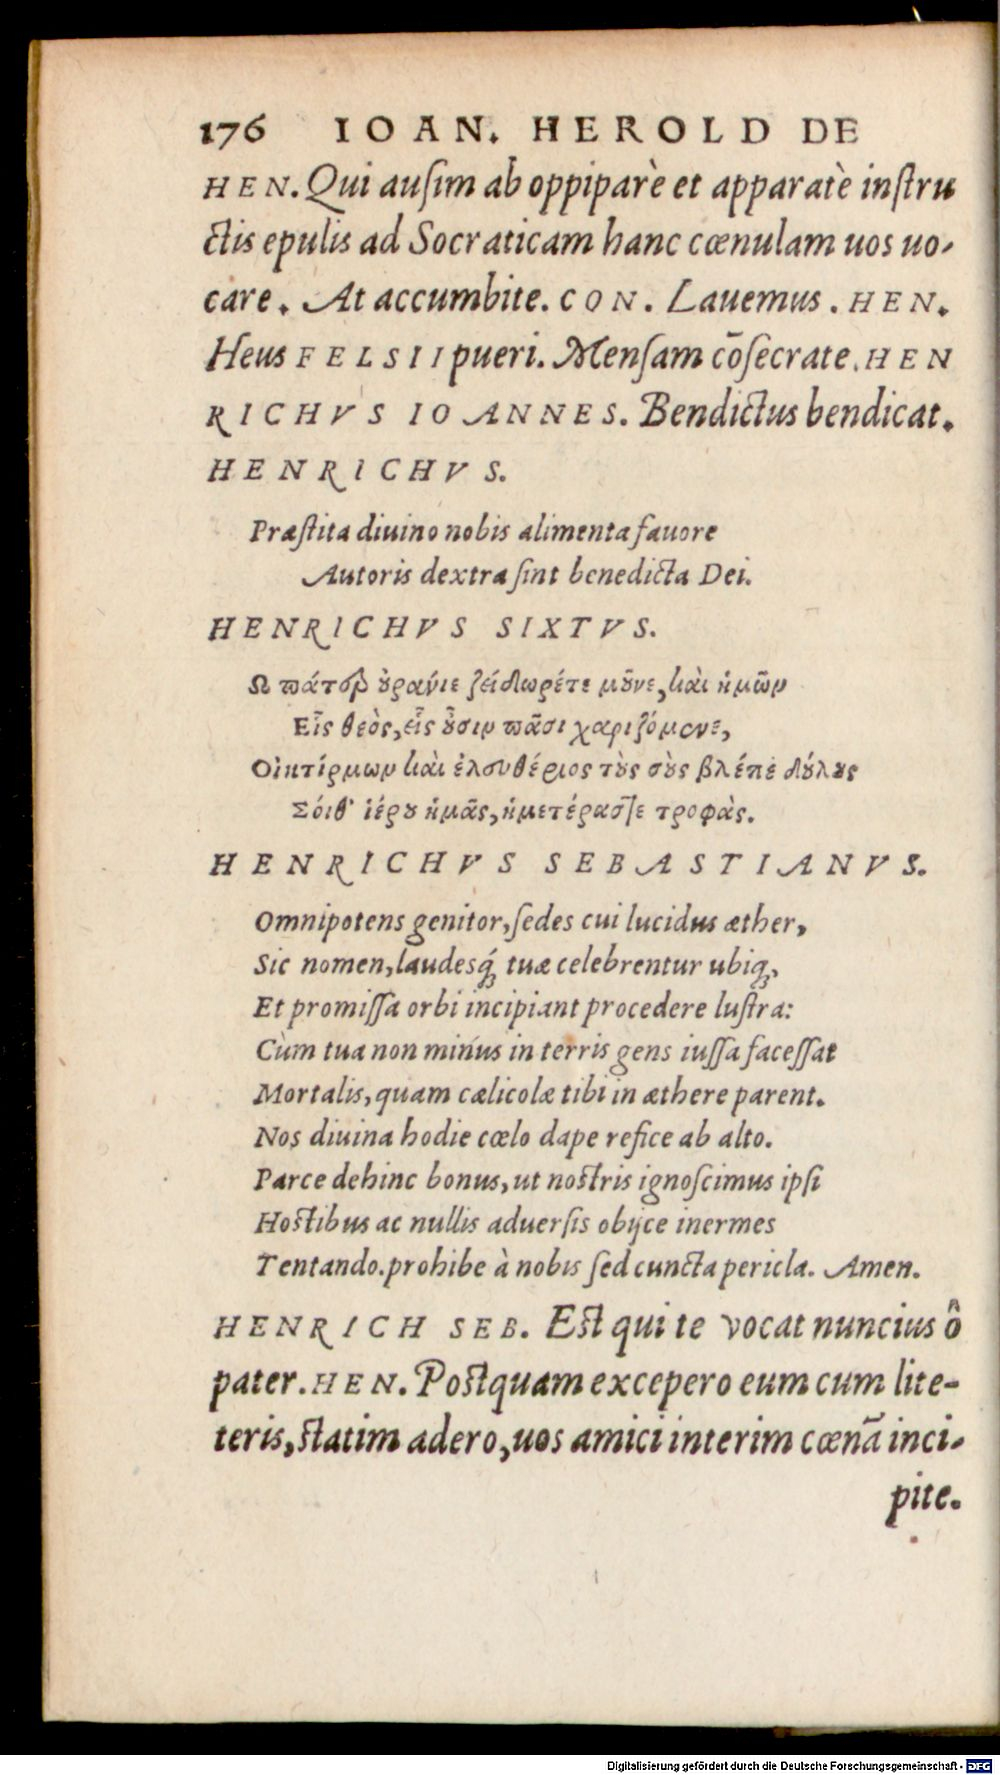 176 IOAN. HEROLD DE
HEN. Qui ausim ab oppiparè et apparatè instru
ctis epulis ad Socraticam hanc cœnulam uos uo-
care. At accumbite. CON. Lauemus. HEN.
Heus FELSII pueri. Mensam cōsecrate. HEN
RICHVS IOANNES. Bendictus bendicat.
HENRICHVS.
Præstita diuino nobis alimenta fauore
Autoris dextra sint benedicta Dei.
HENRICHVS SIXTVS.
Ω πάτερ ὀυράνιε ζείδωρέτε μοῦνε, καὶ ἡμῶν
Εἷς θεὸς, εἷς οὖσιν πᾶσι χαριζόμενε,
Οἰκτίρμων καὶ ἐλευθέριος τοὺς σοὺς βλέπε δούλους
Σόιθ' ἱέρου ἡμᾶς, ἡμετέρας τε τροφὰς.
HENRICHVS SEBASTIANVS.
Omnipotens genitor, sedes cui lucidus æther,
Sic nomen, laudesq́; tuæ celebrentur ubiq;,
Et promissa orbi incipiant procedere lustra:
Cùm tua non minus in terris gens iussa facessat
Mortalis, quam cælicolæ tibi in æthere parent.
Nos diuina hodie cœlo dape refice ab alto.
Parce dehinc bonus, ut nostris ignoscimus ipsi
Hostibus ac nullis aduersis obijce inermes
Tentando. prohibe à nobis sed cuncta pericla. Amen.
HENRICH SEB. Est qui te vocat nuncius ô
pater. HEN. Postquam excepero eum cum lite-
teris, statim adero, uos amici interim cœnā inci-
pite.
Digitalisierung gefördert durch die Deutsche Forschungsgemeinschaft - DFG